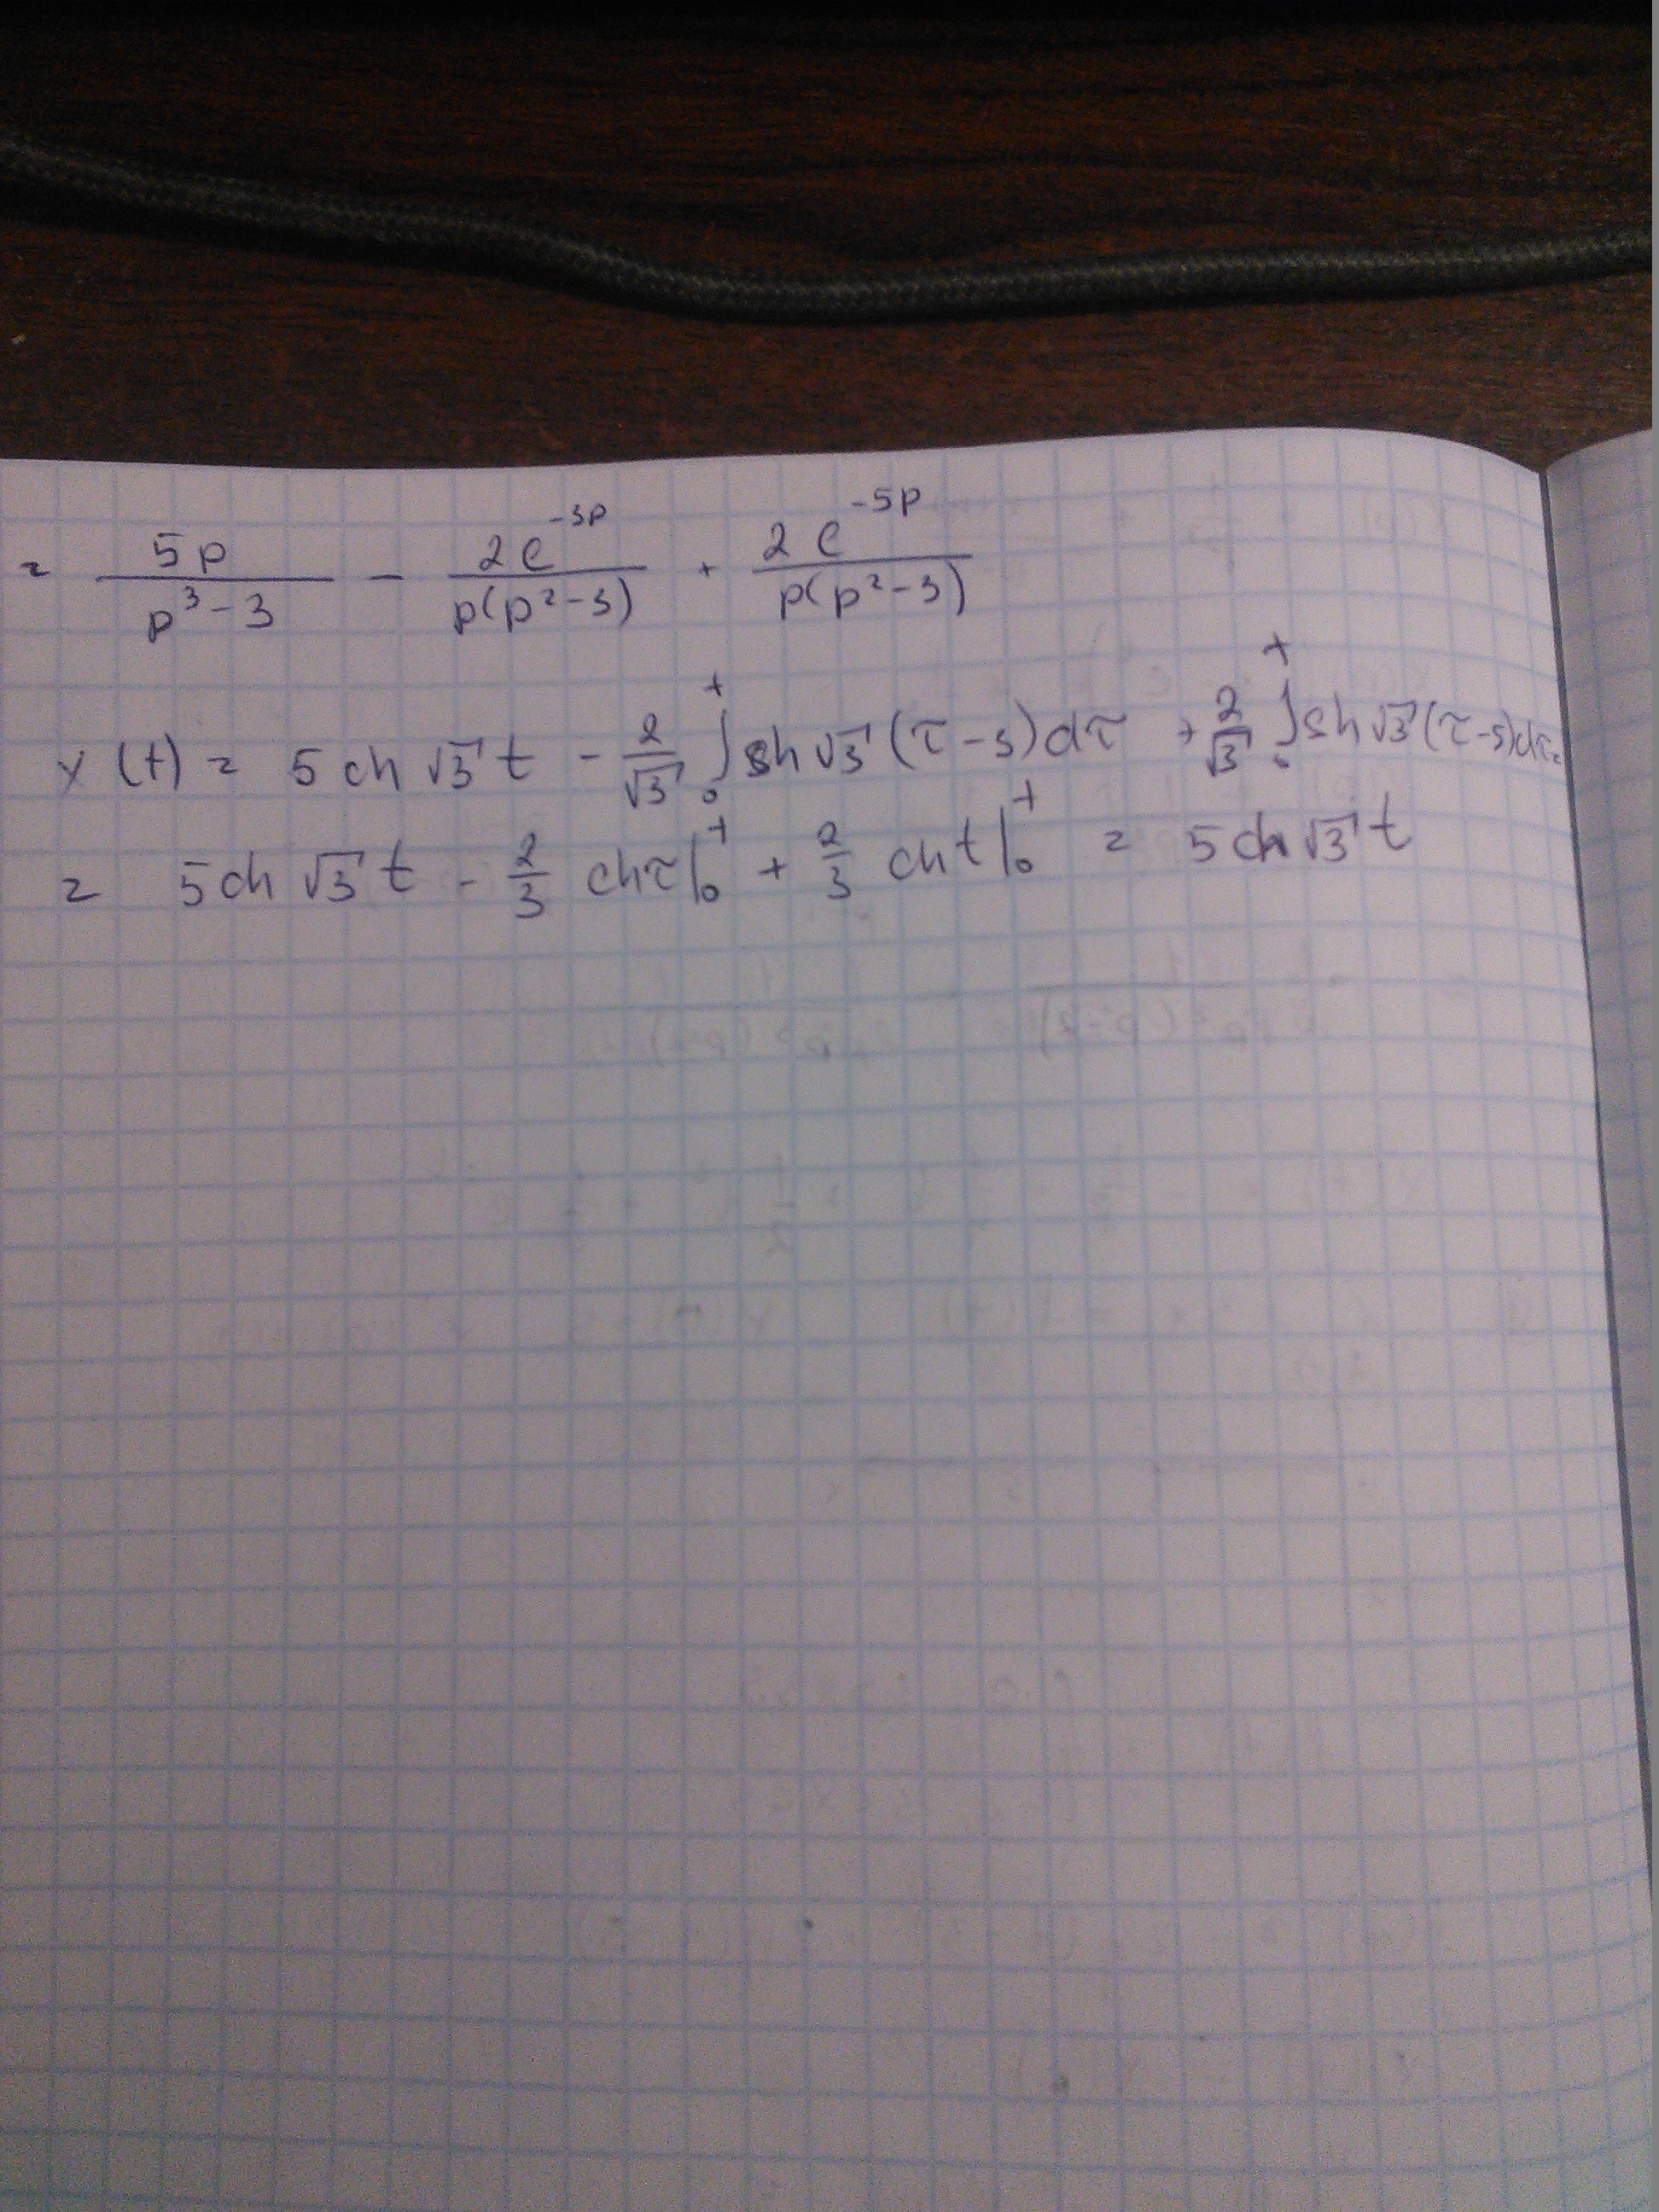 = 5p/(p³-3) - 2e^(-3p)/(p(p²-3)) + 2e^(-5p)/(p(p²-3))
x(t) = 5 ch √3 t - 2/√3 ∫₀ᵗ sh √3 (τ-3) dτ + 2/√3 ∫₀ᵗ sh √3 (τ-5) dτ =
= 5 ch √3 t - 2/3 ch τ |₀ᵗ + 2/3 ch t |₀ᵗ = 5 ch √3 t